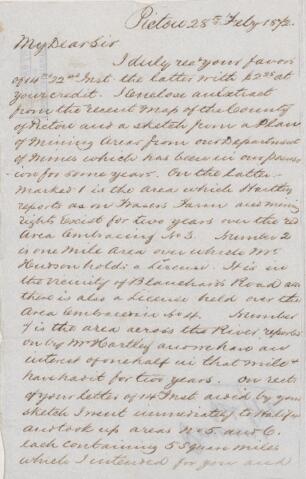 Pictou 28th Feby 1872.
My Dear Sir
I duly recd your favors
of 14th 22nd Inst. the latter with at
your credit. I enclose an Extract
from the recent Map of the County
of Pictou and a sketch from a Plan
of Mining Areas from our Department
of Mines which has been in our posses
ion for some years. On the latter
marked 1 is the area which Hartley
reports as on Frasers Farm and mining
rights Exist for two years over the red
Area Embracing No 3. Number 2
is one Mile Area over which Mr
Hudson holds a License. It is in
the vicinity of Blanchard Road and
there is also a License held over the
Area Embraced in No 4. Number
7 is the area across the River reported
on by Mr Hartley and we have an
interest of one half in that mile &
have had it for two years. On rect
of your letter of 14 Inst and by your
sketch I went immediately to Halifax
and took up areas No 5 and 6.
each containing 5 Square miles
which I intended for you and